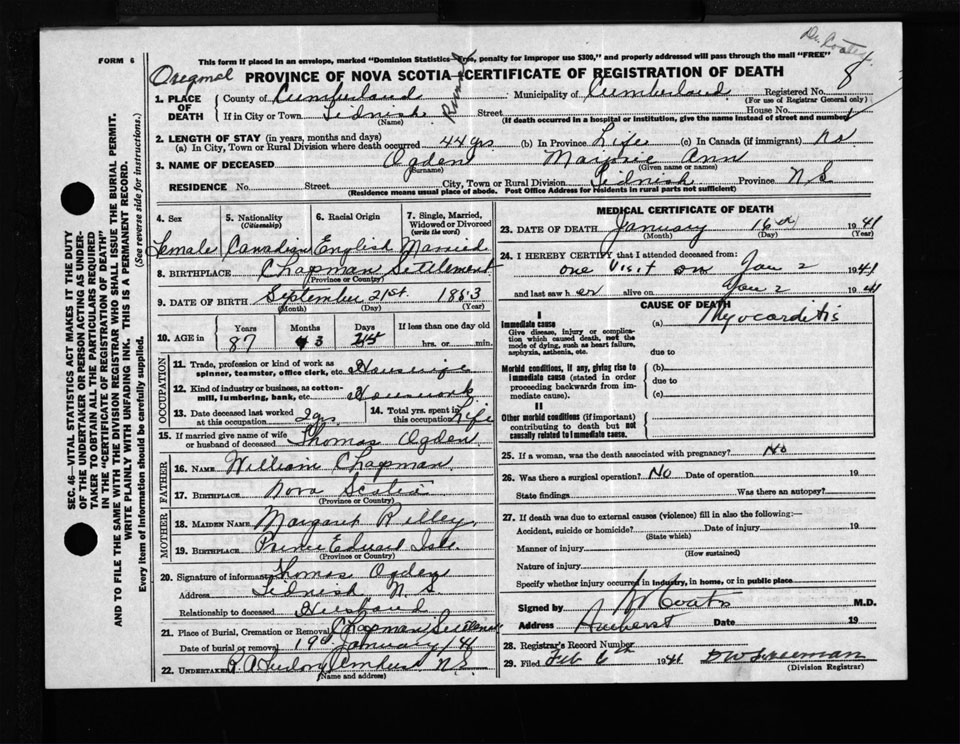 Dr. Coates
This form if placed in an envelope, marked "Dominion Statistics—Free, penalty for improper use $300," and properly addressed will pass through the mail "FREE"
FORM 6
Original PROVINCE OF NOVA SCOTIA—CERTIFICATE OF REGISTRATION OF DEATH
8
1. PLACE OF DEATH County of Cumberland Municipality of Cumberland Registered No.
(For use of Registrar General only)
If in City or Town Tidnish Rural Street House No.
(Name) (If death occurred in a hospital or institution, give the name instead of street and number)
2. LENGTH OF STAY (in years, months and days)
(a) In City, Town or Rural Division where death occurred 44 yrs (b) In Province Life (c) In Canada (if immigrant)
3. NAME OF DECEASED Ogden Ann
(Surname) (Given name or names)
RESIDENCE No. Street City, Town or Rural Division Tidnish Province N S
(Residence means usual place of abode. Post Office Address for residents in rural parts not sufficient)
4. Sex 5. Nationality (Citizenship) 6. Racial Origin 7. Single, Married, Widowed or Divorced (write the word)
Female Canadian English Married
8. BIRTHPLACE Chapman Settlement
(Province or Country)
9. DATE OF BIRTH September 21st. 1853
(Month) (Day) (Year)
10. AGE in Years Months Days If less than one day old
87 3 hrs. or min.
OCCUPATION
11. Trade, profession or kind of work as spinner, teamster, office clerk, etc. Housewife
12. Kind of industry or business, as cotton-mill, lumbering, bank, etc. Housework
13. Date deceased last worked at this occupation 2 yrs 14. Total yrs. spent in this occupation Life
15. If married give name of wife or husband of deceased Thomas Ogden
FATHER
16. NAME William Chapman
17. BIRTHPLACE Nova Scotia
(Province or Country)
MOTHER
18. MAIDEN NAME Margaret
19. BIRTHPLACE Prince Edward Isle
(Province or Country)
20. Signature of informant Thomas Ogden
Address Tidnish N. S.
Relationship to deceased Husband
21. Place of Burial, Cremation or Removal Chapman Settlement
Date of burial or removal 19th January / 41
22. UNDERTAKER Amherst N.S.
(Name and address)
MEDICAL CERTIFICATE OF DEATH
23. DATE OF DEATH January 16th 1941
(Month) (Day) (Year)
24. I HEREBY CERTIFY that I attended deceased from:
one visit on Jan 2 1941
and last saw h er alive on Jan 2 1941
CAUSE OF DEATH
I
Immediate cause (a) Myocarditis
Give disease, injury or complication which caused death, not the mode of dying, such as heart failure, asphyxia, asthenia, etc.
due to
Morbid conditions, if any, giving rise to immediate cause (stated in order proceeding backwards from immediate cause).
(b)
due to
(c)
II
Other morbid conditions (if important) contributing to death but not causally related to immediate cause.
25. If a woman, was the death associated with pregnancy? No
26. Was there a surgical operation? No Date of operation 19
State findings Was there an autopsy?
27. If death was due to external causes (violence) fill in also the following:—
Accident, suicide or homicide? Date of injury 19
(State which)
Manner of injury
(How sustained)
Nature of injury
Specify whether injury occurred in industry, in home, or in public place
Signed by Coates M.D.
Address Amherst Date 19
28. Registrar's Record Number
29. Filed Feb 6th 1941
(Division Registrar)
SEC. 46—VITAL STATISTICS ACT MAKES IT THE DUTY
OF THE UNDERTAKER OR PERSON ACTING AS UNDER-
TAKER TO OBTAIN ALL THE PARTICULARS REQUIRED
IN THE "CERTIFICATE OF REGISTRATION OF DEATH"
AND TO FILE THE SAME WITH THE DIVISION REGISTRAR WHO SHALL ISSUE THE BURIAL PERMIT.
WRITE PLAINLY WITH UNFADING INK. THIS IS A PERMANENT RECORD.
Every item of information should be carefully supplied. (See reverse side for instructions.)